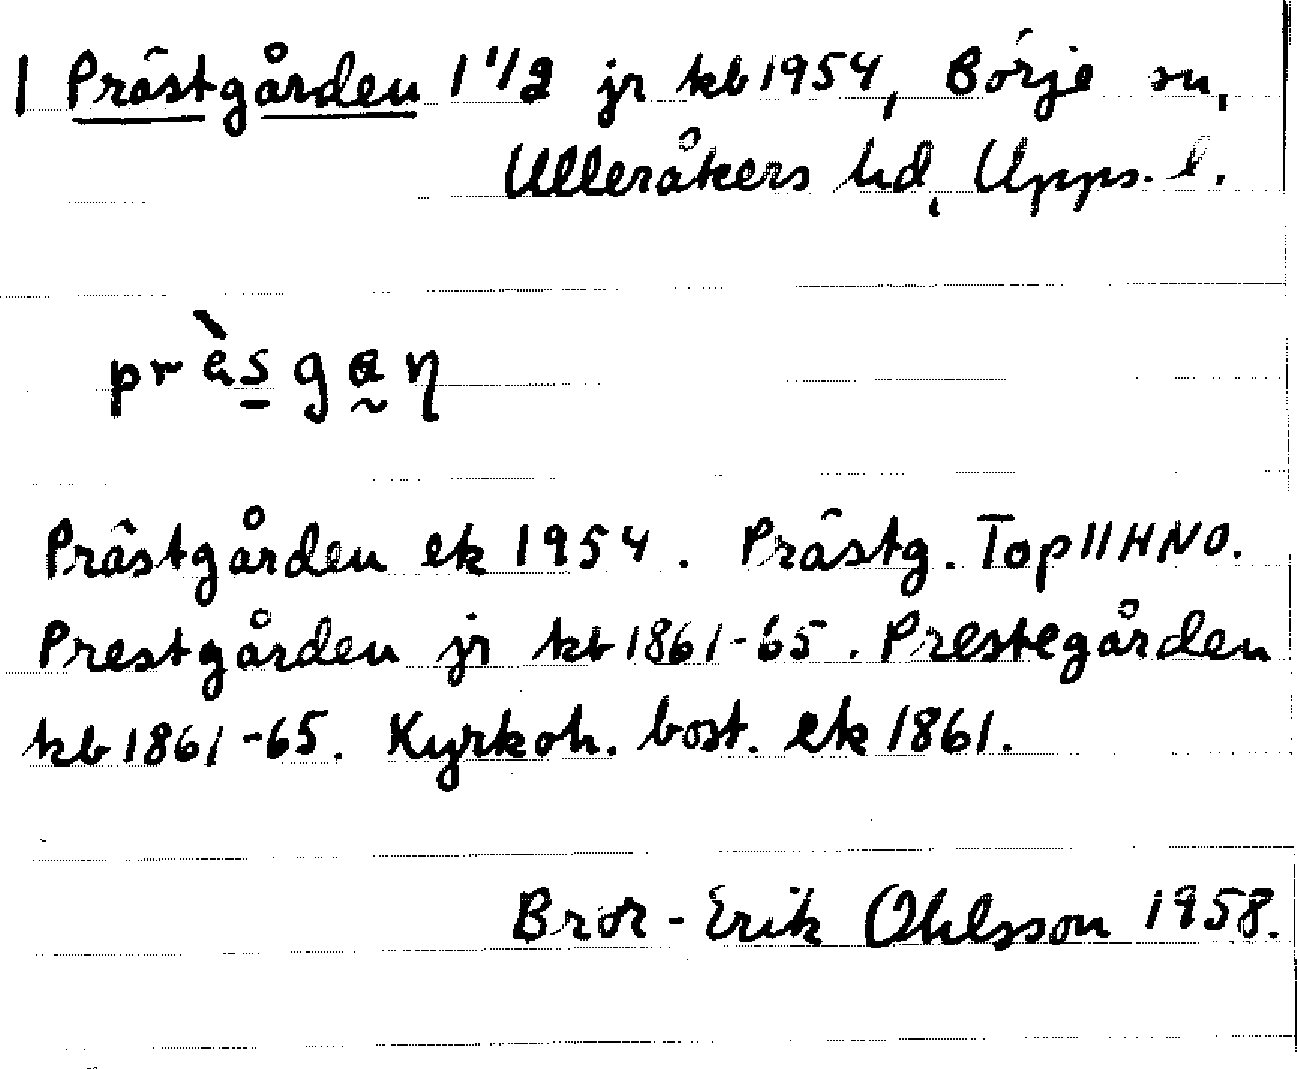 1 Prästgården 1 1/2 jr kb 1954, Börje sn,
Ulleråkers hd, Upps. l.
prèsgaɳ
Prästgården ek 1954. Prästg. Top 11HNO.
Prestgården jr kb 1861-65. Prestegården
kb 1861-65. Kyrkoh. bost. ek 1861.
Bror-Erik Ohlsson 1958.